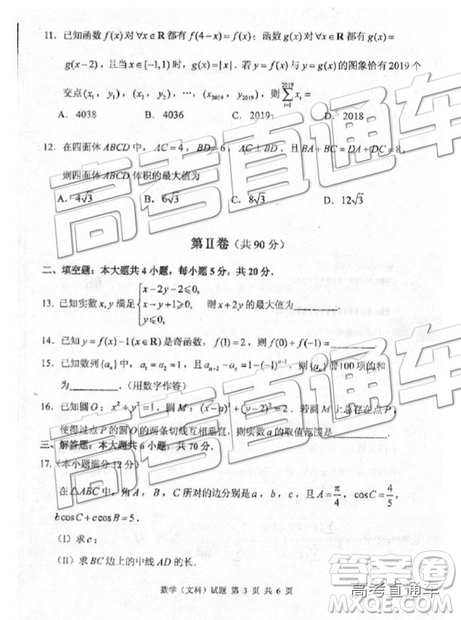 11. 已知函数 f(x) 对 ∀x∈R 都有 f(4-x)=f(x)；函数 g(x) 对 ∀x∈R 都有 g(x)=
g(x-2)，且当 x∈[-1,1) 时，g(x)=|x|．若 y=f(x) 与 y=g(x) 的图象恰有 2019 个
交点 (x₁, y₁)，(x₂, y₂)，…，(x₂₀₁₉, y₂₀₁₉)，则 ∑(i=1→2019) xᵢ=
A. 4038 B. 4036 C. 2019 D. 2018
12. 在四面体 ABCD 中，AC=4，BD=6，AC⊥BD，且 BA+BC=DA+DC=8，
则四面体 ABCD 体积的最大值为
A. 4√3 B. 6√3 C. 8√3 D. 12√3
第Ⅱ卷（共 90 分）
二、填空题：本大题共 4 小题，每小题 5 分，共 20 分．
13. 已知实数 x, y 满足 {x-2y-2≤0, x-y+1≥0, y≤0, 则 x+2y 的最大值为
14. 已知 y=f(x)-1(x∈R) 是奇函数，f(1)=2，则 f(0)+f(-1)=
15. 已知数列{aₙ}中，a₁=a₂=1，且 aₙ₊₂-aₙ=1-(-1)ⁿ⁻¹，则{aₙ}前100项的和
为 ．（用数字作答）
16. 已知圆 O：x²+y²=1，圆 M：(x-a)²+(y-2)²=2．若圆 M 上总存在点 P，
使得过点 P 的圆 O 的两条切线互相垂直，则实数 a 的取值范围是
三、解答题：本大题共 6 小题，共 70 分．
17.（本小题满分 12 分）
在△ABC 中，角 A，B，C 所对的边分别是 a，b，c，且 A=π/4，cosC=4/5，
bcosC+ccosB=5．
(I) 求 c；
(II) 求 BC 边上的中线 AD 的长．
数学（文科）试题 第 3 页 共 6 页
高考直通车
高考直通车
答案圈
MXQE.COM
高考直通车